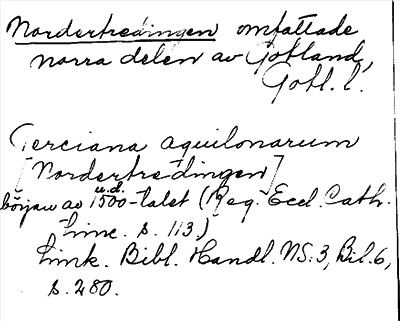 Nordertredingen omfattade
norra delen av Gotland,
Gotl. l.
Terciana aquilonarum
[Nordertredingen]
början av 1500-talet (Reg. Eccl. Cath.
u.d.
Linc. s. 113.)
Link. Bibl. Handl. NS: 3, Bil. 6,
s. 280.